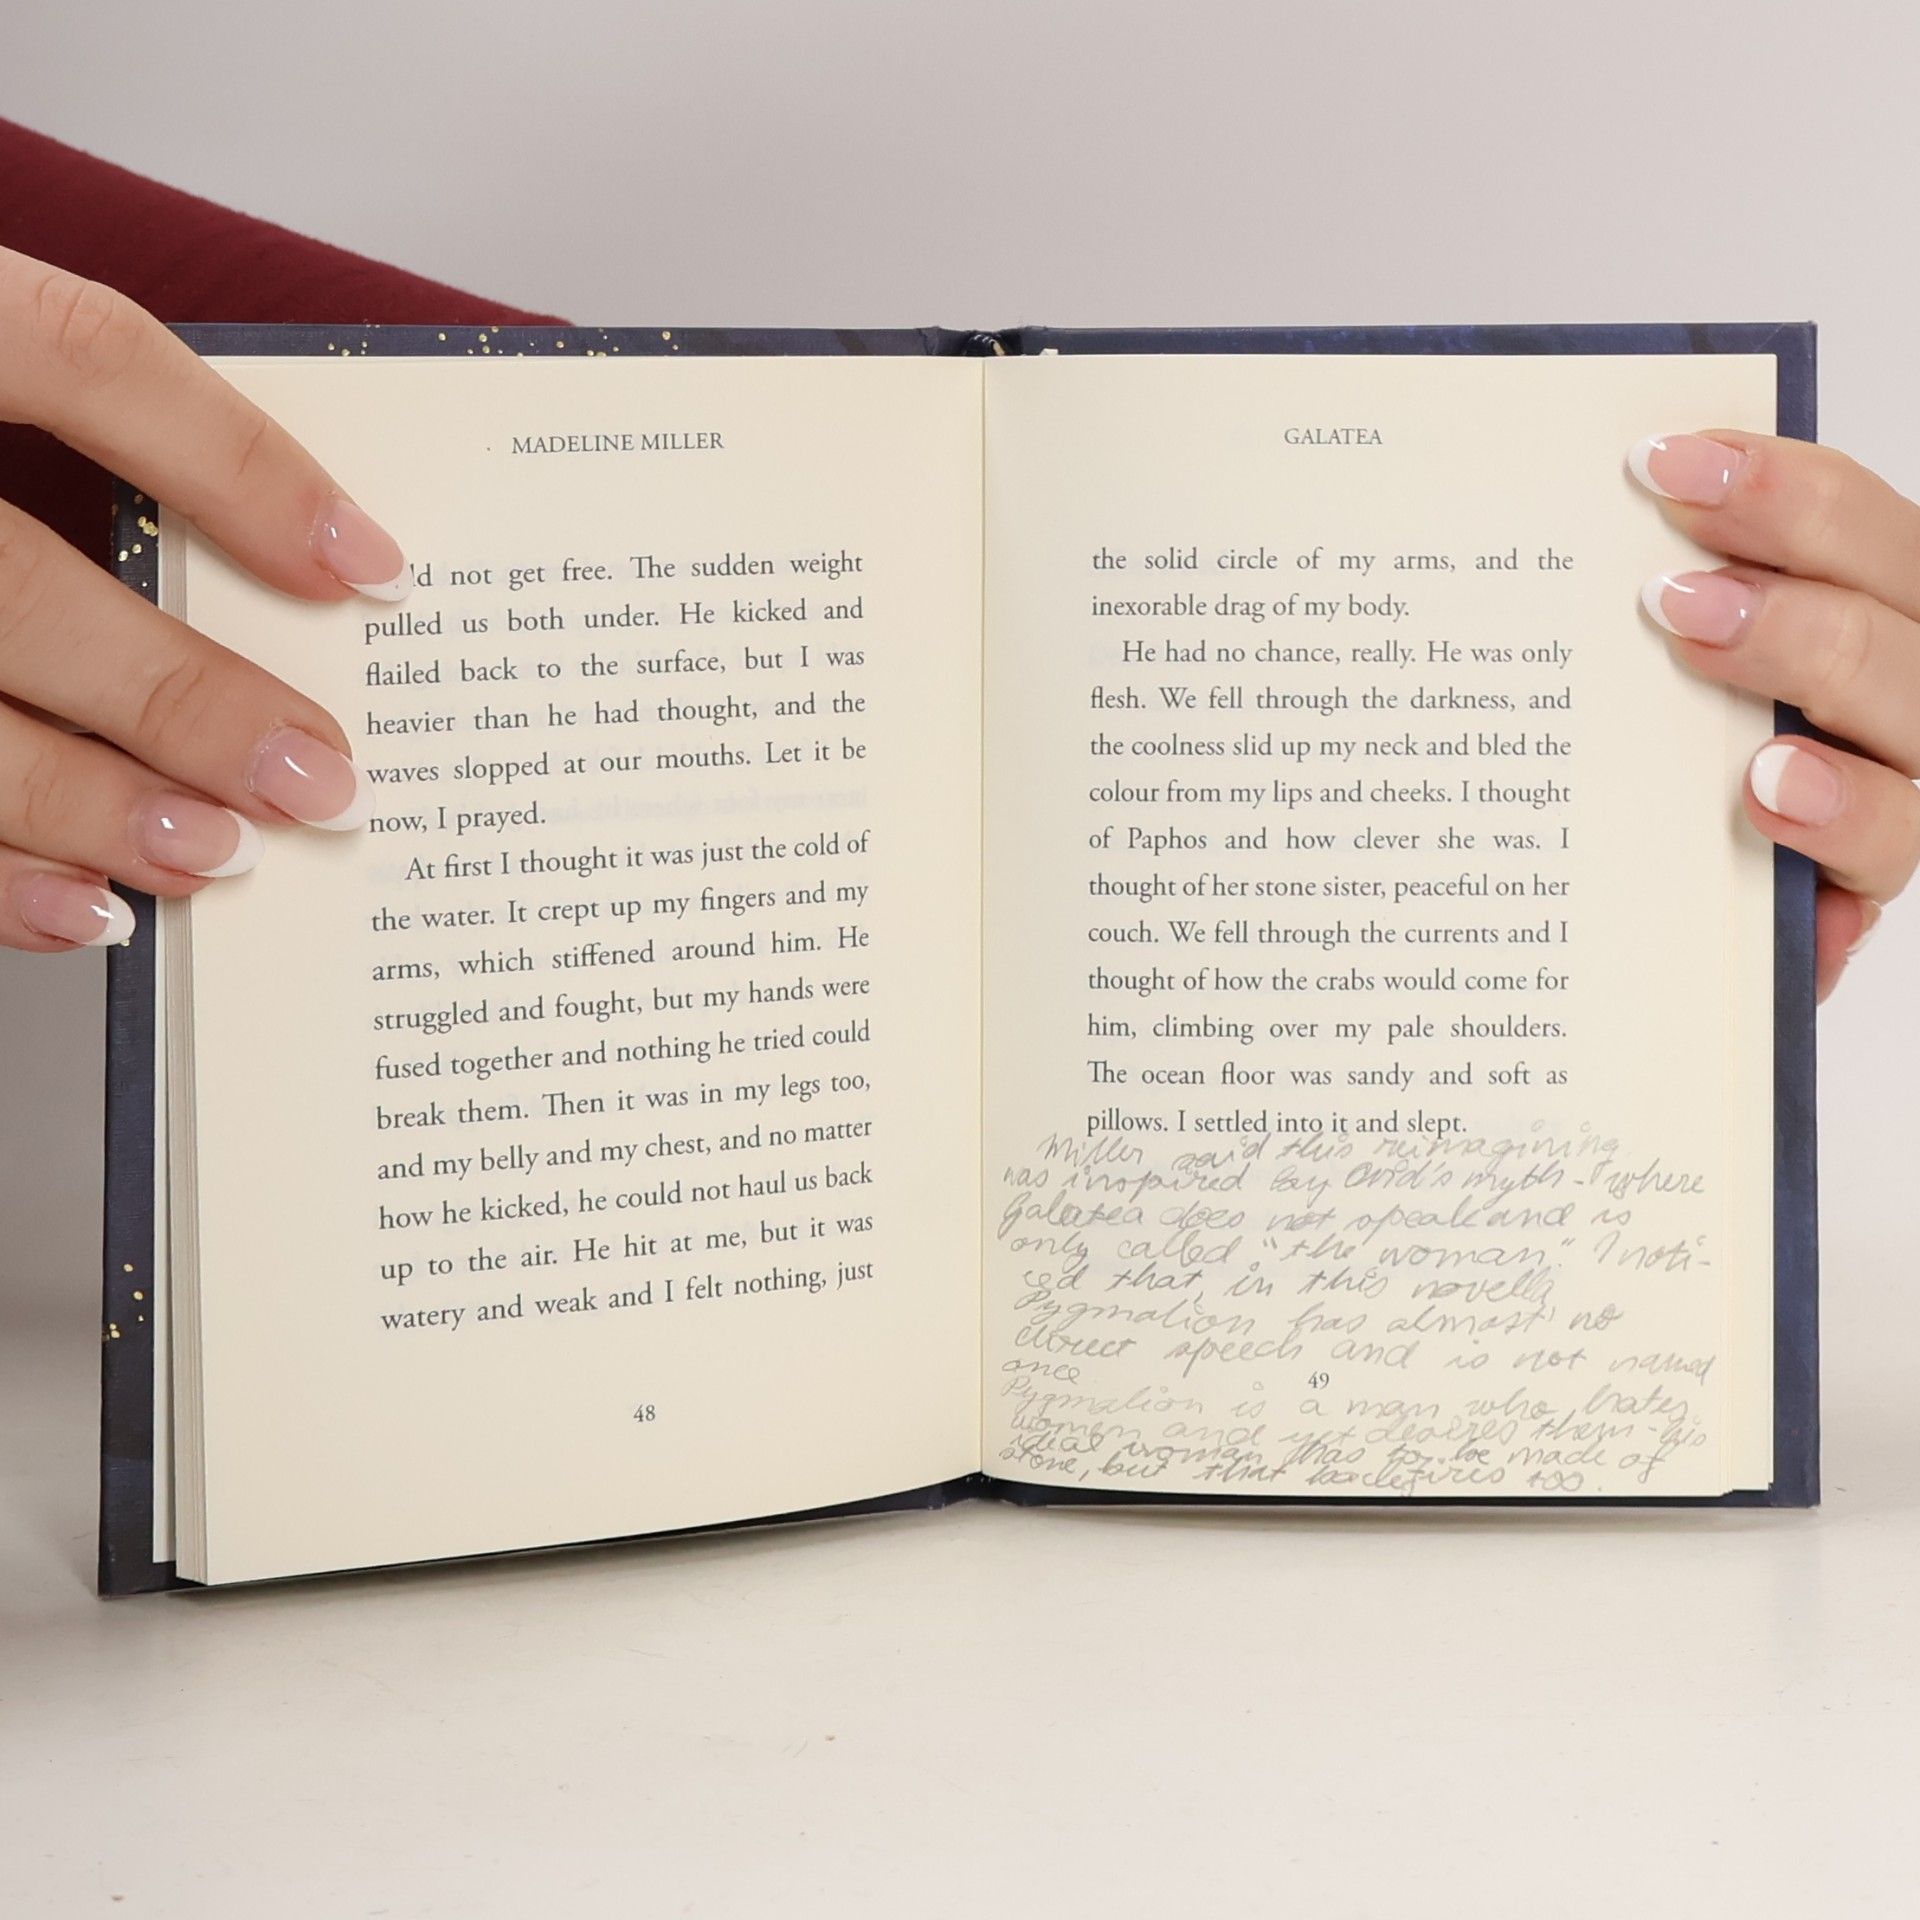 MADELINE MILLER
ld not get free. The sudden weight
pulled us both under. He kicked and
flailed back to the surface, but I was
heavier than he had thought, and the
waves slopped at our mouths. Let it be
now, I prayed.
At first I thought it was just the cold of
the water. It crept up my fingers and my
arms, which stiffened around him. He
struggled and fought, but my hands were
fused together and nothing he tried could
break them. Then it was in my legs too,
and my belly and my chest, and no matter
how he kicked, he could not haul us back
up to the air. He hit at me, but it was
watery and weak and I felt nothing, just
48
GALATEA
the solid circle of my arms, and the
inexorable drag of my body.
He had no chance, really. He was only
flesh. We fell through the darkness, and
the coolness slid up my neck and bled the
colour from my lips and cheeks. I thought
of Paphos and how clever she was. I
thought of her stone sister, peaceful on her
couch. We fell through the currents and I
thought of how the crabs would come for
him, climbing over my pale shoulders.
The ocean floor was sandy and soft as
pillows. I settled into it and slept.
Miller said this reimagining
was inspired by Ovid's myth - where
Galatea does not speak and is
only called "the woman." I noti-
ced that, in this novella
Pygmalion has almost no
direct speech and is not named
once
49
Pygmalion is a man who hates
women and yet desires them - his
ideal woman has to be made of
stone, but that backfires too.